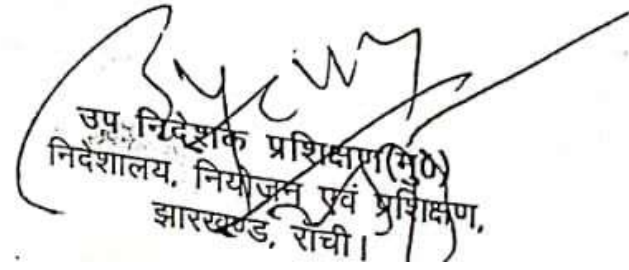 उप निदेशक प्रशिक्षण(मु0)
निदेशालय, नियोजन एवं प्रशिक्षण,
झारखण्ड, राँची।